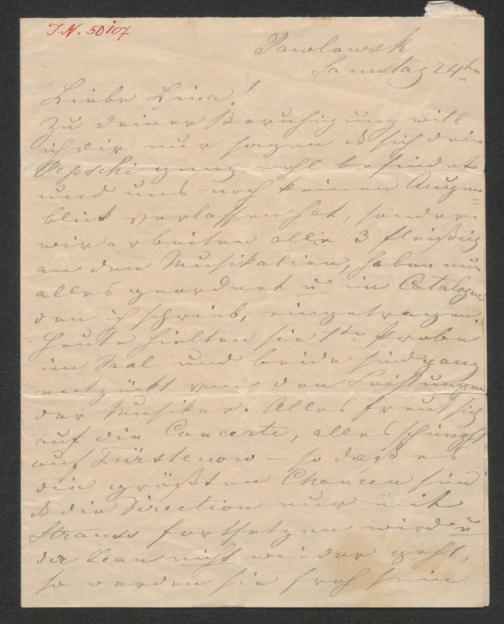 J.N. 50107
Pawlowsk
Samstag 24ten
Liebe Lina!
Zu deiner Beruhigung will
ich dir nur sagen d sich dein
Pepschi ganz wohl befindet
und uns noch keinen Augen=
blick verlassen hat, sondern
wir arbeiten alle 3 fleißig
an den Musikalien, haben nun
alles geordnet u im Catalog
den ich schrieb, eingetragen.
Heute hielten sie 1te Probe
im Saal und beide sind ganz
entzückt von den Leistungen
der Musiker. Alles freut sich
auf die Concerte, alles schimpft
auf Fürstenow – so daß es
die größten Chancen sind
d die Direction nur mit
Strauss fortsetzen wird u
der Jean nicht wieder geht,
so werden sie froh sein